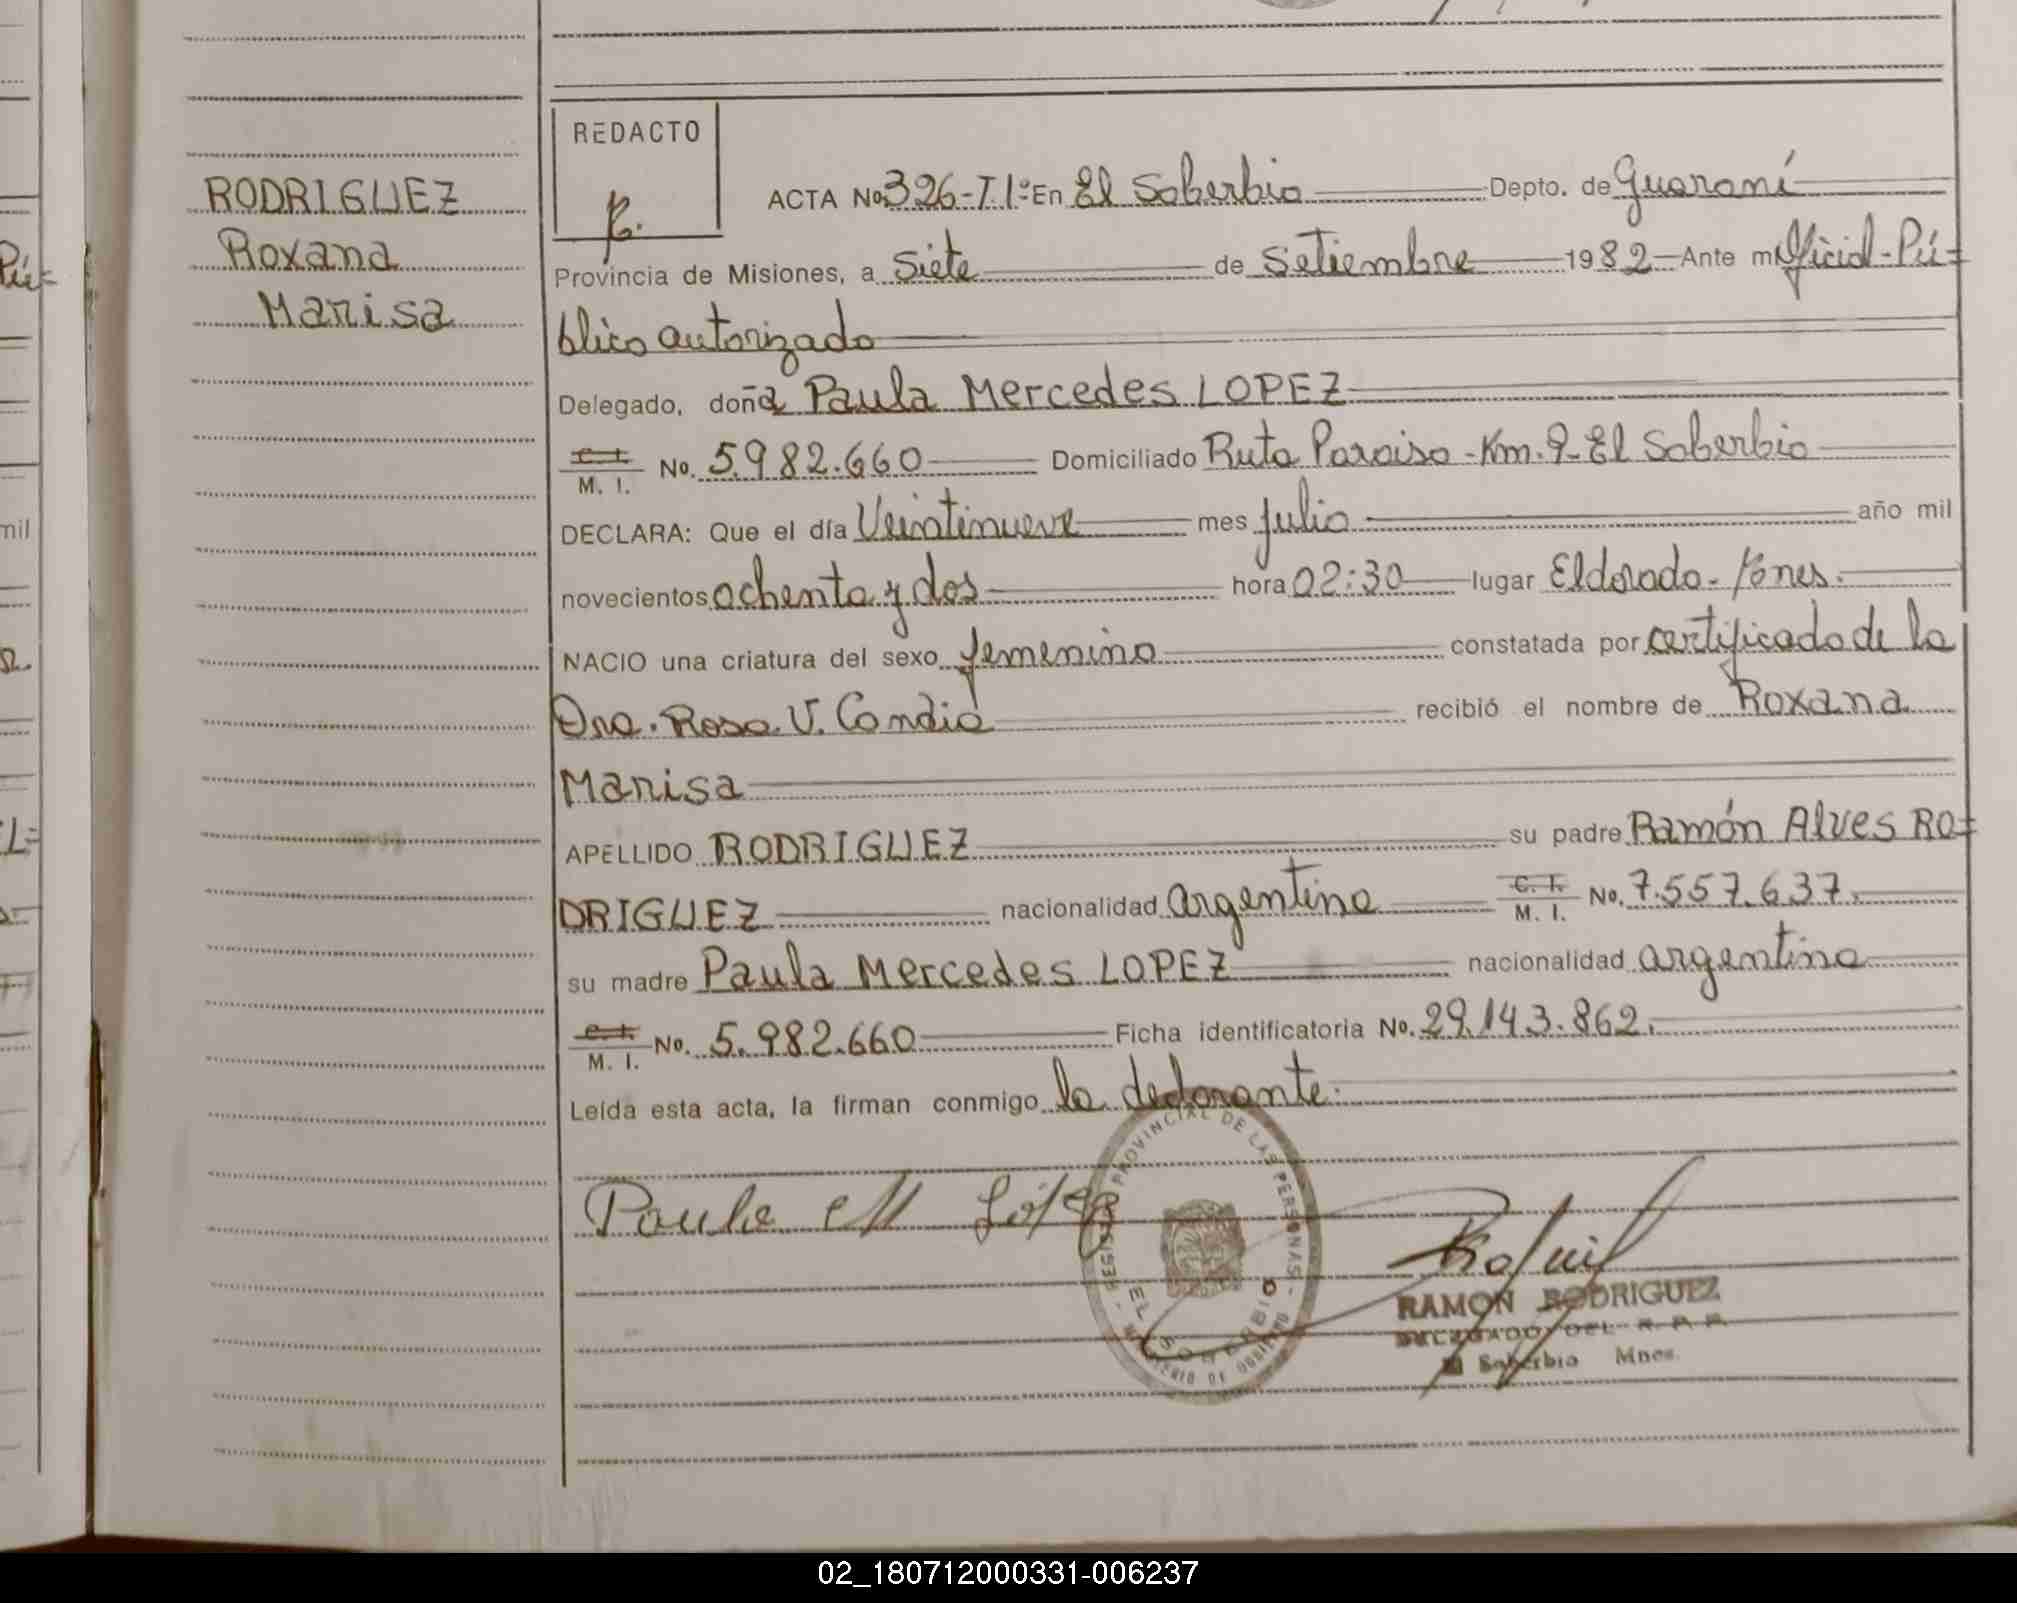 REDACTO
RODRIGUEZ
Roxana
Marisa
ACTA No 326-T.1º En El Soberbio Depto. de Guaraní
Provincia de Misiones, a Siete de Setiembre 1982 Ante mí Oficial-Pú=
blico autorizado
Delegado, doña Paula Mercedes LOPEZ
C. I.
M. I. No. 5.982.660 Domiciliado Ruta Paraiso-Km. 9-El Soberbio
DECLARA: Que el día Veintinueve mes Julio año mil
novecientos ochenta y dos hora 02:30 lugar Eldorado-Mnes.
NACIO una criatura del sexo femenino constatada por certificado de la
Dra. Rosa V. Candia recibió el nombre de Roxana
Marisa
APELLIDO RODRIGUEZ su padre Ramón Alves RO=
DRIGUEZ nacionalidad argentina C. I. M. I. No. 7.557.637.
su madre Paula Mercedes LOPEZ nacionalidad argentina
C. I.
M. I. No. 5.982.660 Ficha identificatoria No. 29.143.862.
Leída esta acta, la firman conmigo la declarante.
Paula M López
REGISTRO PROVINCIAL DE LAS PERSONAS - MINISTERIO DE GOBIERNO
EL SOBERBIO
RAMON RODRIGUEZ
DELEGADO DEL R. P. P.
El Soberbio Mnes.
Pú=
mil
L=
02_180712000331-006237